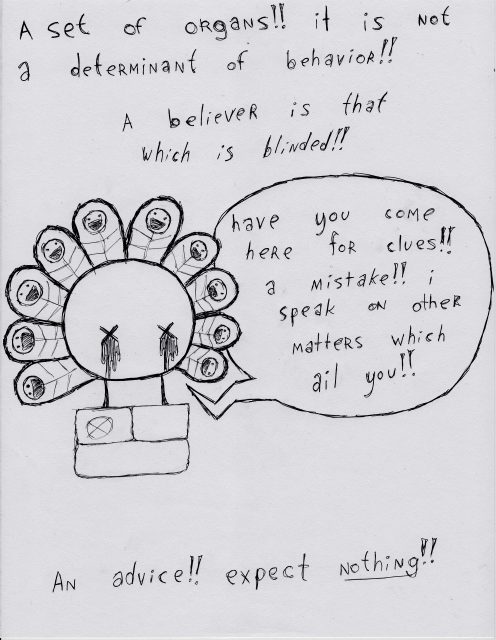 A set of organs!! it is not
a determinant of behavior!!
A believer is that
which is blinded!!
have you come
here for clues!!
a mistake!! i
speak on other
matters which
ail you!!
An advice!! expect nothing!!